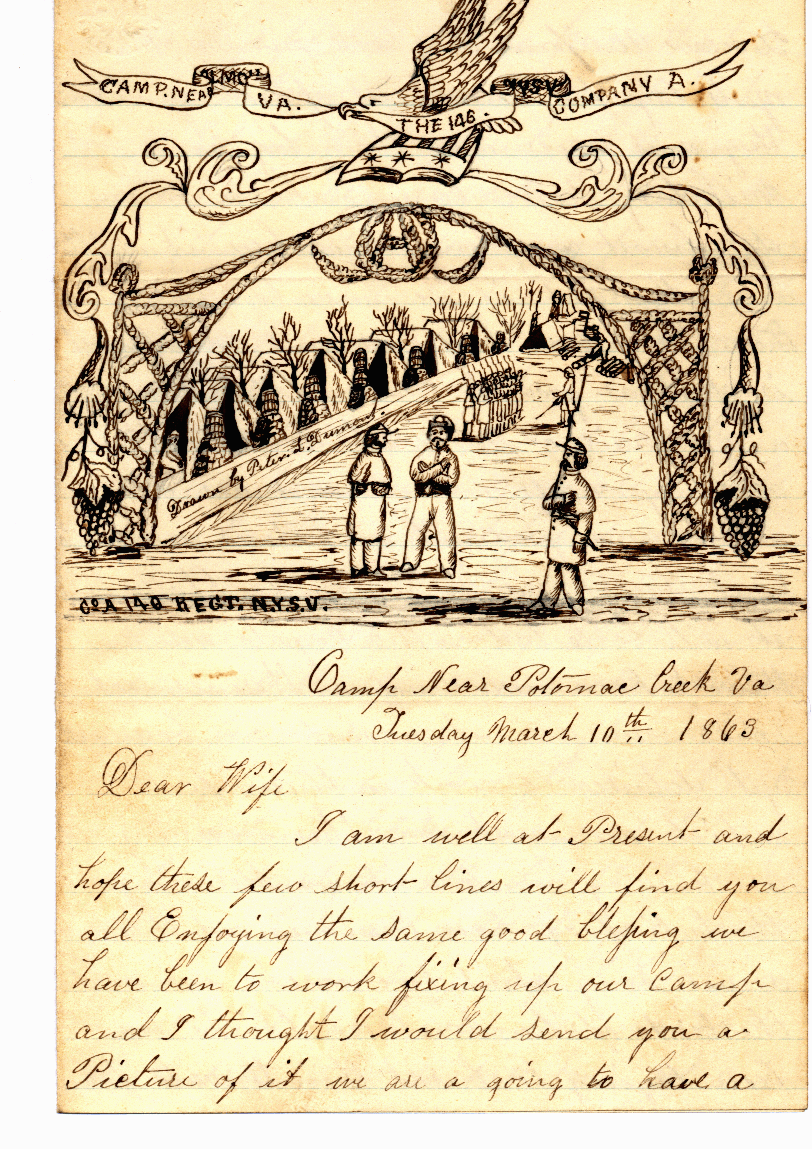 CAMP. NEAR
VA.
THE 146.
NYSV
COMPANY A.
A
Drawn by Peter. L. Dumon.
Co A 146 REGT. N.Y.S.V.
Camp Near Potomac Creek Va
Tuesday March 10th 1863
Dear Wife
I am well at Present and
hope these few short lines will find you
all Enjoying the same good bleſsing we
have been to work fixing up our Camp
and I thought I would send you a
Picture of it we are a going to have a